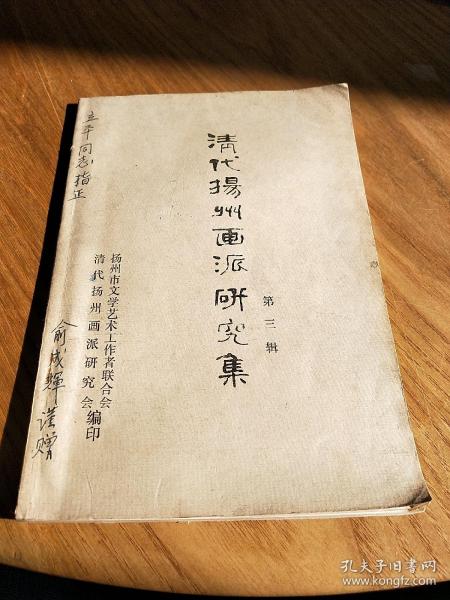 清代揚州画派研究集
第三辑
扬州市文学艺术工作者联合会
清代扬州画派研究会编印
立平同志指正
俞成輝謹赠
孔夫子旧书网
www.kongfz.com